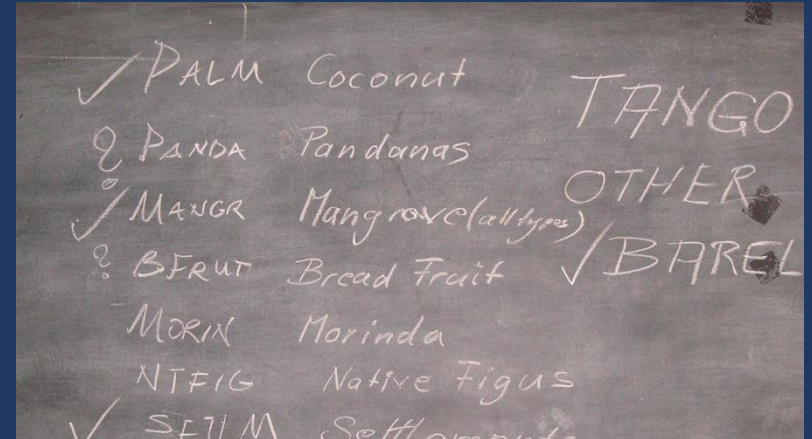 ✓ PALM Coconut
? PANDA Pandanas
✓ MANGR Mangrove (all types)
? BFRUT Bread Fruit
MORIN Morinda
NTFIG Native Figus
✓ SETLM Settlements
TANGO
OTHER
✓ BAREL